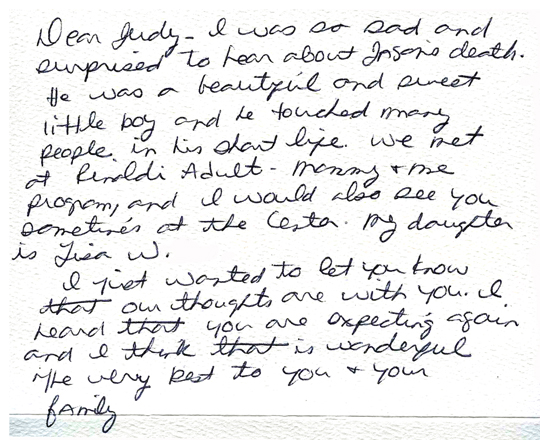 Dear Judy - I was so sad and
surprised to hear about Jason's death.
He was a beautiful and sweet
little boy and he touched many
people in his short life. We met
at Rinaldi Adult - mommy + me
program, and I would also see you
sometimes at the Center. My daughter
is Lisa W.
I just wanted to let you know
that our thoughts are with you. I
heard that you are expecting again
and I think that is wonderful
The very best to you + your
family